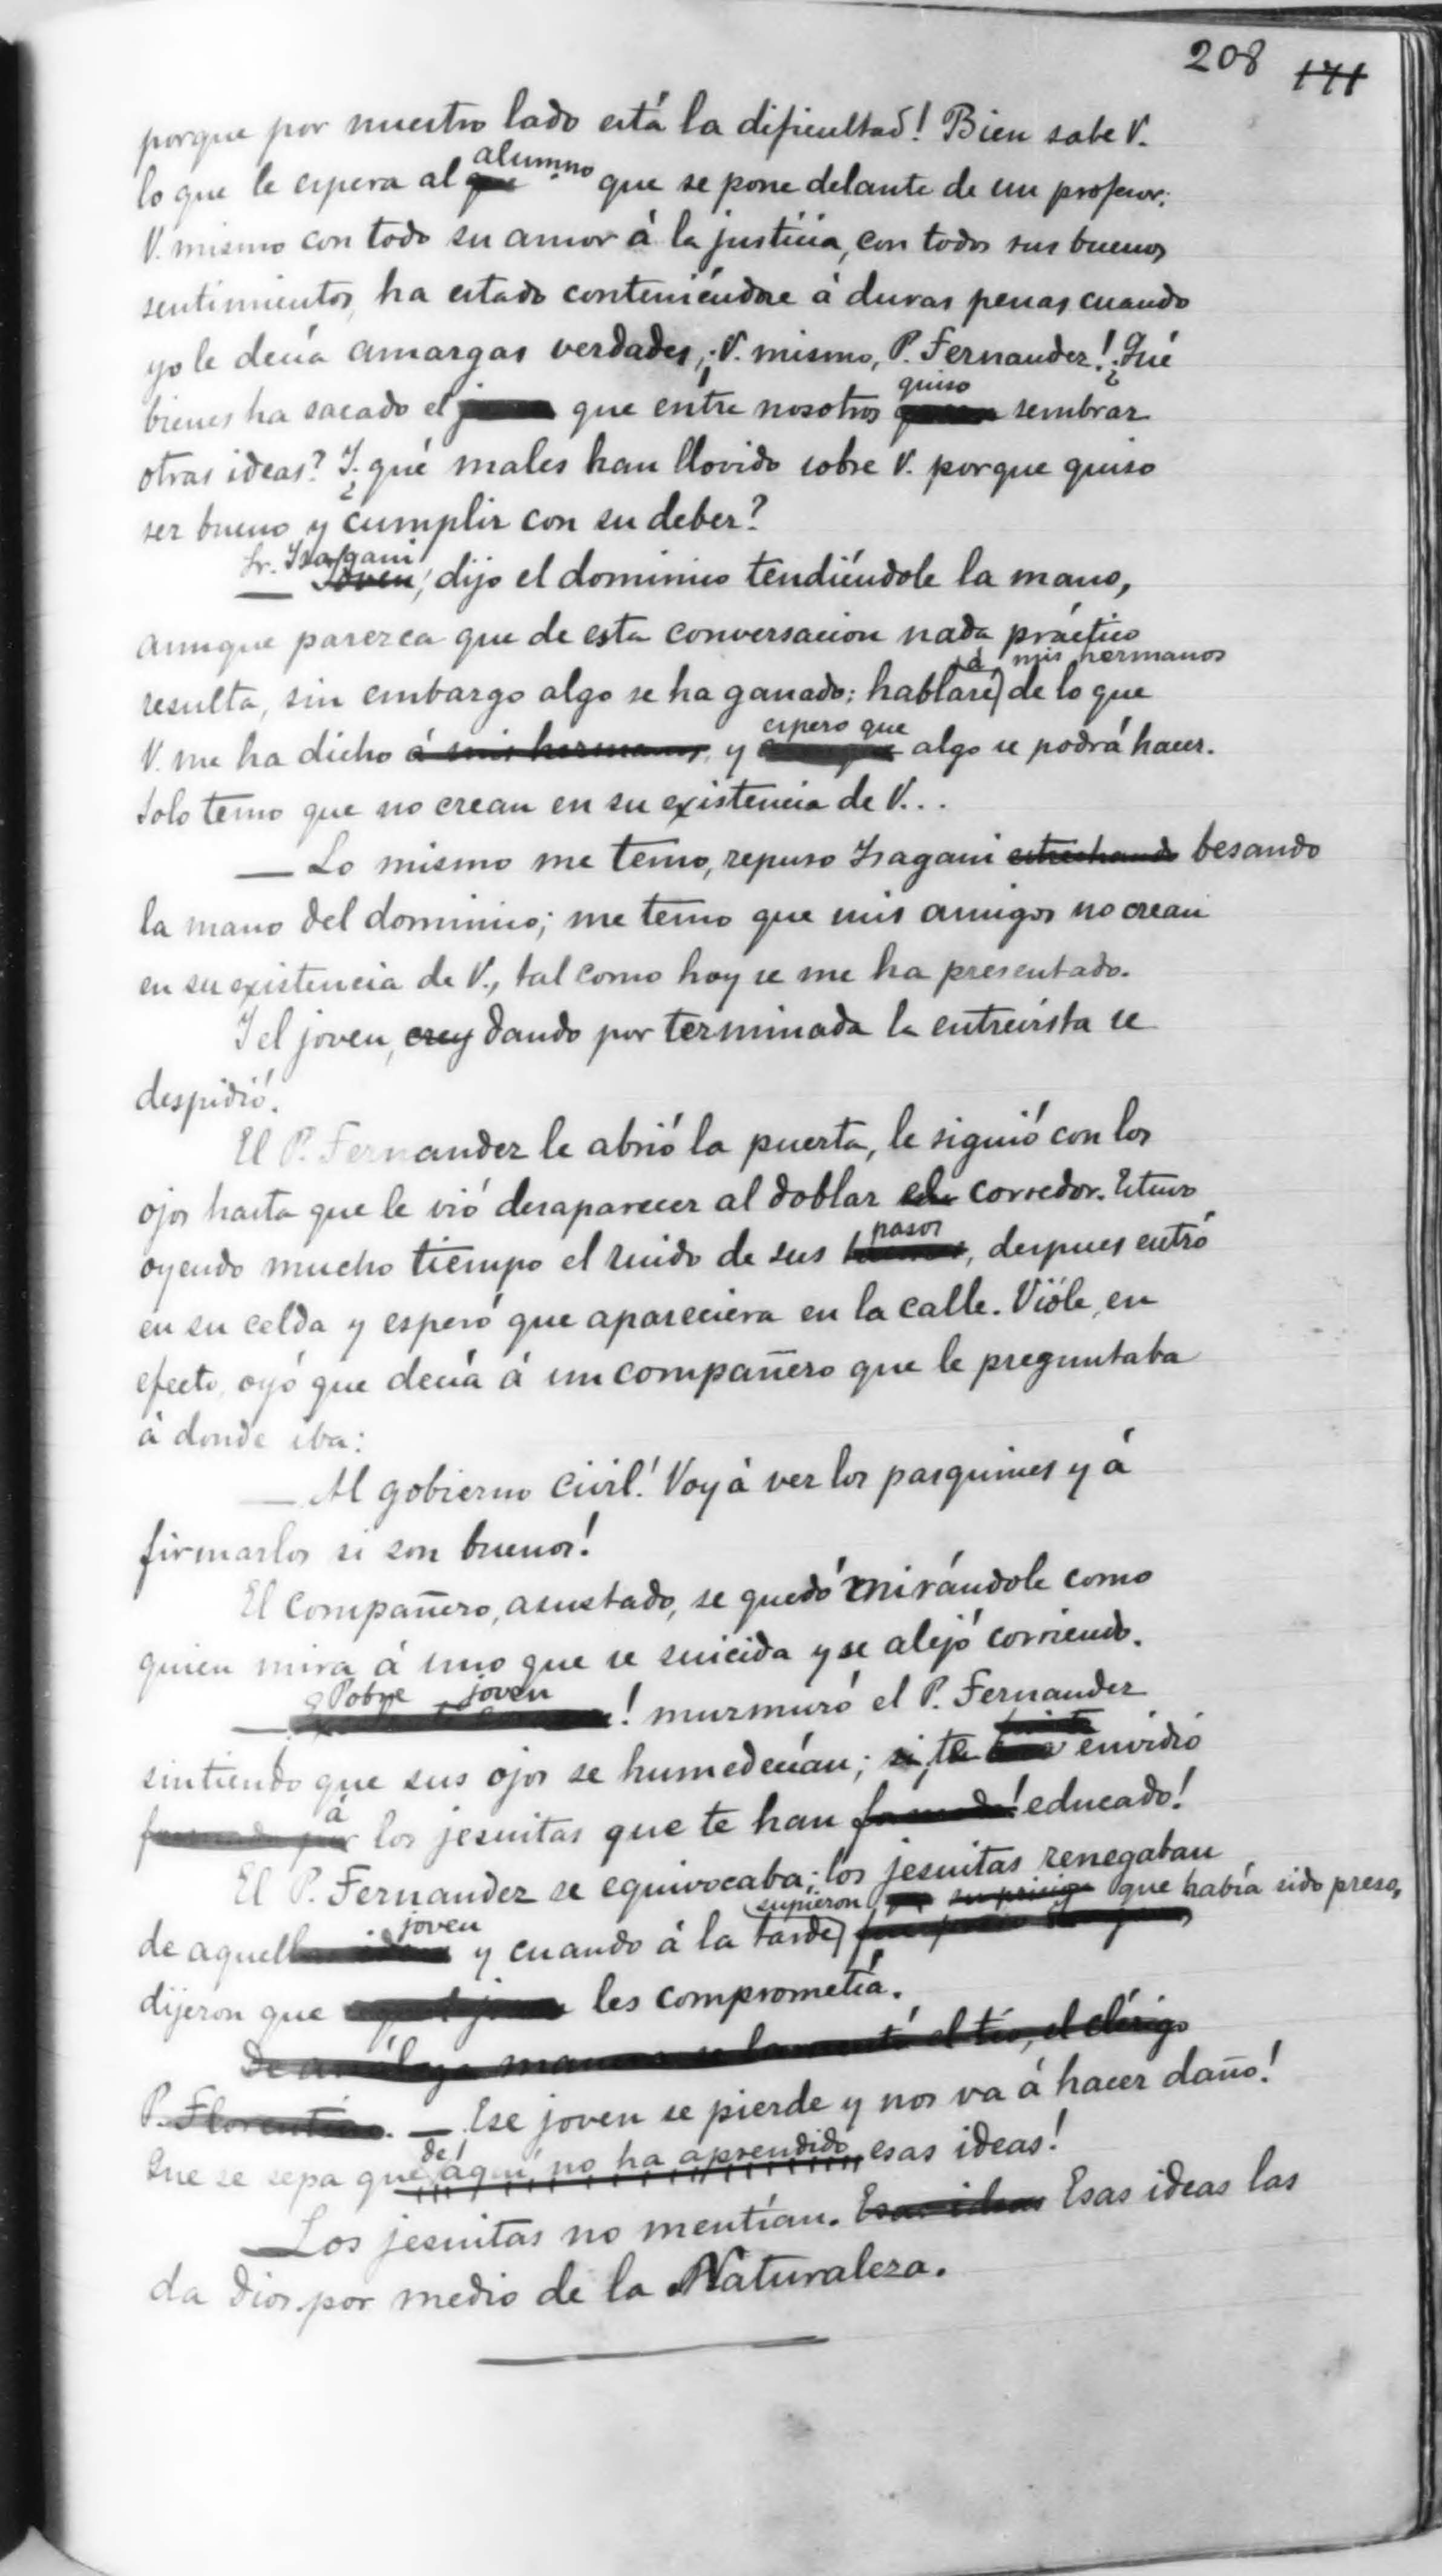 208 171
porque por nuestro lado está la dificultad! Bien sabe V.
lo que le espera al que alumno que se pone delante de un profesor;
V. mismo con todo su amor á la justicia, con todos sus buenos
sentimientos, ha estado conteniéndose á duras penas cuando
yo le decía amargas verdades, ¡V. mismo, P. Fernandez! ¿Qué
bienes ha sacado el que entre nosotros quiso sembrar
otras ideas? Y ¿qué males han llovido sobre V. porque quiso
ser bueno y cumplir con su deber?
— Sr. Isagani Joven, dijo el dominico tendiéndole la mano,
aunque parezca que de esta conversacion nada práctico
resulta, sin embargo algo se ha ganado; hablaré á mis hermanos de lo que
V. me ha dicho á mis hermanos, y espero que algo se podrá hacer.
Solo temo que no crean en su existencia de V...
— Lo mismo me temo, repuso Isagani estrechando besando
la mano del dominico; me temo que mis amigos no crean
en su existencia de V., tal como hoy se me ha presentado.
Y el joven, crey dando por terminada la entrevista se
despidió.
El P. Fernandez le abrió la puerta, le siguió con los
ojos hasta que le vió desaparecer al doblar el corredor. Estuvo
oyendo mucho tiempo el ruido de sus pasos, despues entró
en su celda y esperó que apareciera en la calle. Vióle, en
efecto, oyó que decía á un compañero que le preguntaba
á donde iba:
— Al gobierno Civil! Voy á ver los pasquines y á
firmarlos si son buenos!
El compañero, asustado, se quedó mirándole como
quien mira á uno que se suicida y se alejó corriendo.
— Pobre joven! murmuró el P. Fernandez
sintiendo que sus ojos se humedecían; si, te envidio
á los jesuitas que te han educado!
El P. Fernandez se equivocaba; los jesuitas renegaban
de aquel joven y cuando á la tarde supieron su prision que había sido preso,
dijeron que les comprometía.
De análoga manera se lamentó el tío, el clérigo
P. Florentino. — Ese joven se pierde y nos va á hacer daño!
Que se sepa que de aquí no ha aprendido esas ideas!
Los jesuitas no mentían. Esas ideas Esas ideas las
da Dios por medio de la Naturaleza.